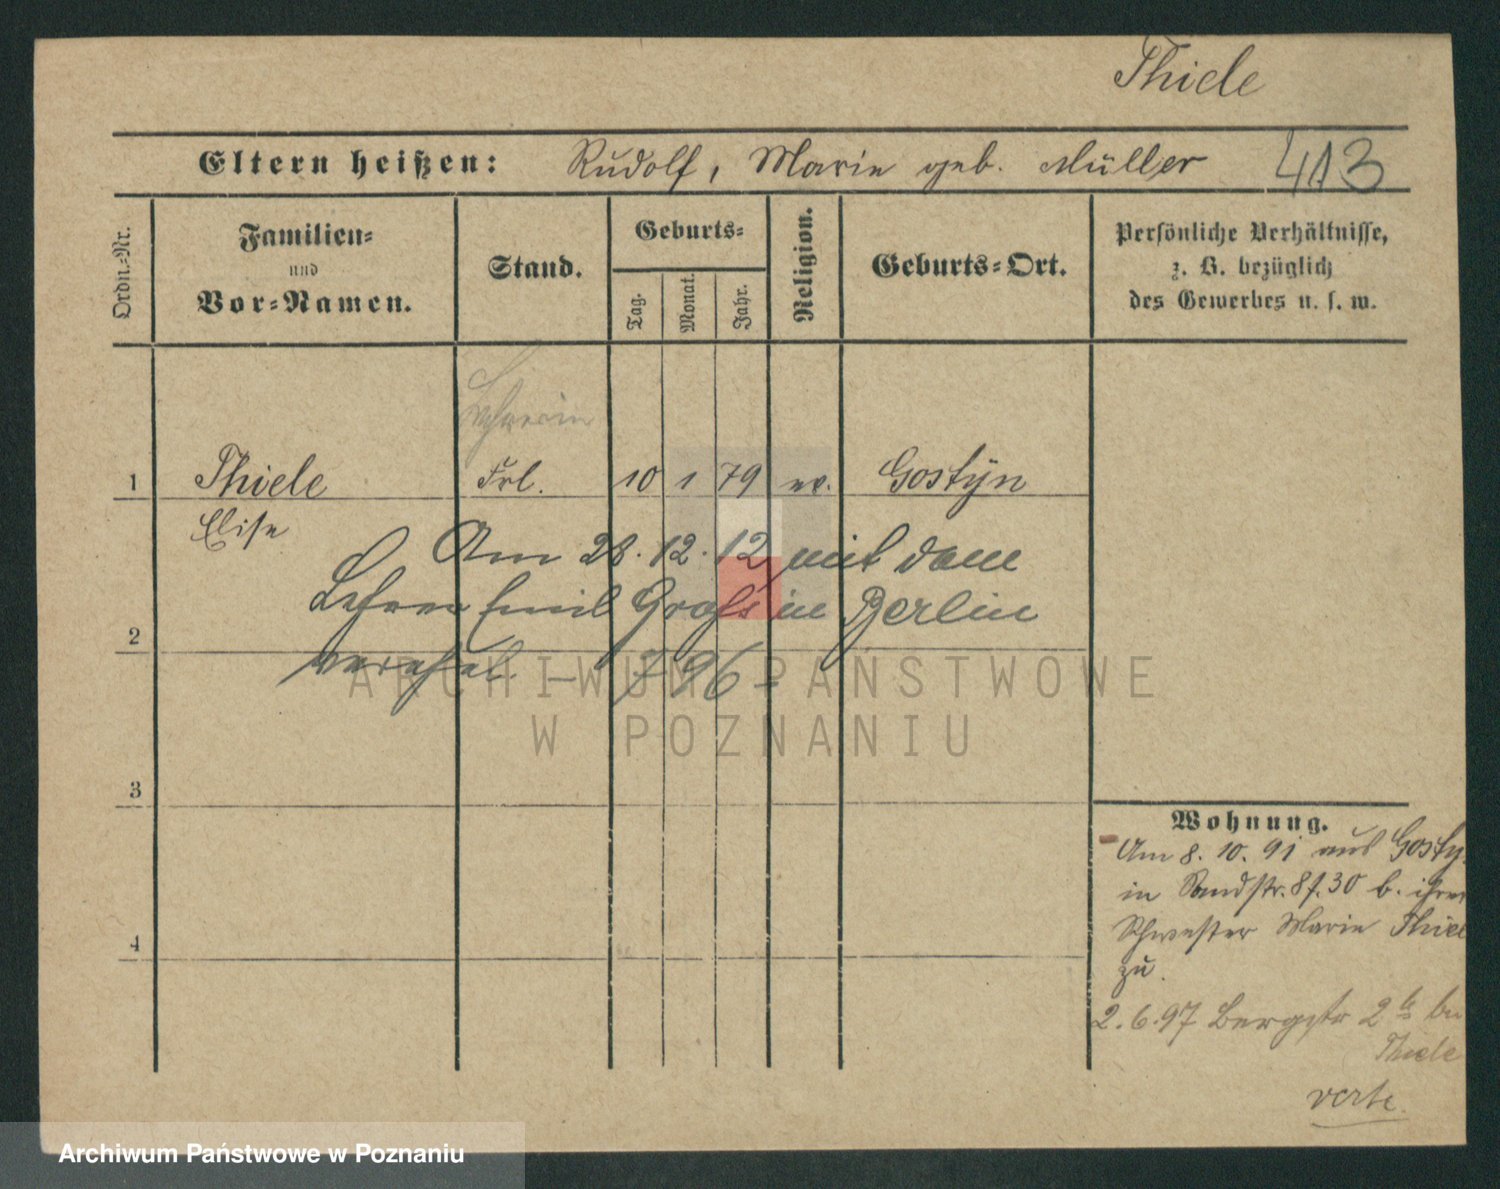 Thiele
Eltern heißen: Rudolf, Marie geb. Müller 413
Ordn.-Nr.
Familien-
und
Vor-Namen.
Stand.
Geburts-
Tag.
Monat.
Jahr.
Religion.
Geburts-Ort.
Persönliche Verhältnisse,
z. B. bezüglich
des Gewerbes u. s. w.
Lehrerin
1 Thiele Frl. 10 1 79 ev. Gostÿn
Elise
Am 28. 12. 12 mit dem
Lehrer Emil Groß in Berlin
verehel. – 796 –
2
3
4
Wohnung.
Am 8. 10. 91 aus Gosty
in Sandstr. 8 f. 30 b. ihrer
Schwester Marie Thiel
zu.
2. 6. 97 Bergstr 2b bei
Thiele
verte
ARCHIWUM PAŃSTWOWE
W POZNANIU
Archiwum Państwowe w Poznaniu